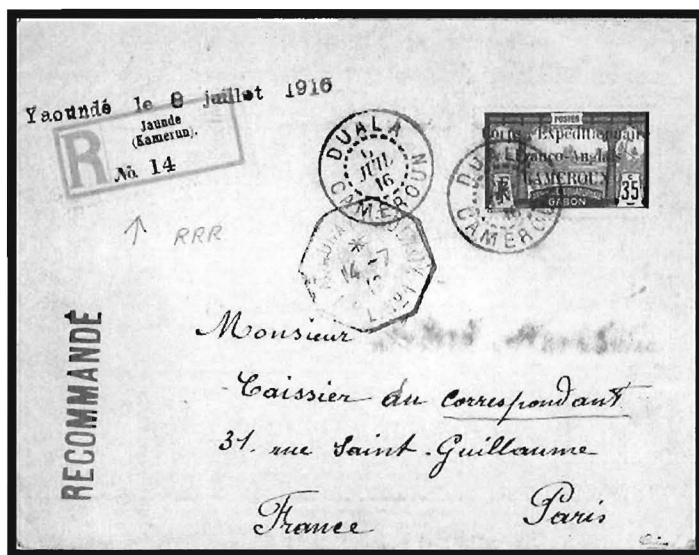 Yaoundé le 8 juillet 1916
Jaunde
(Kamerun).
R
No. 14
RRR
RECOMMANDÉ
DUALA
JUIL
16
CAMEROUN
14 -7
POSTES
Corps Expéditionnaire
Franco-Anglais
CAMEROUN
GABON
35
DUALA
16
CAMEROUN
Monsieur
Caissier du correspondant
31. rue Saint-Guillaume
France Paris